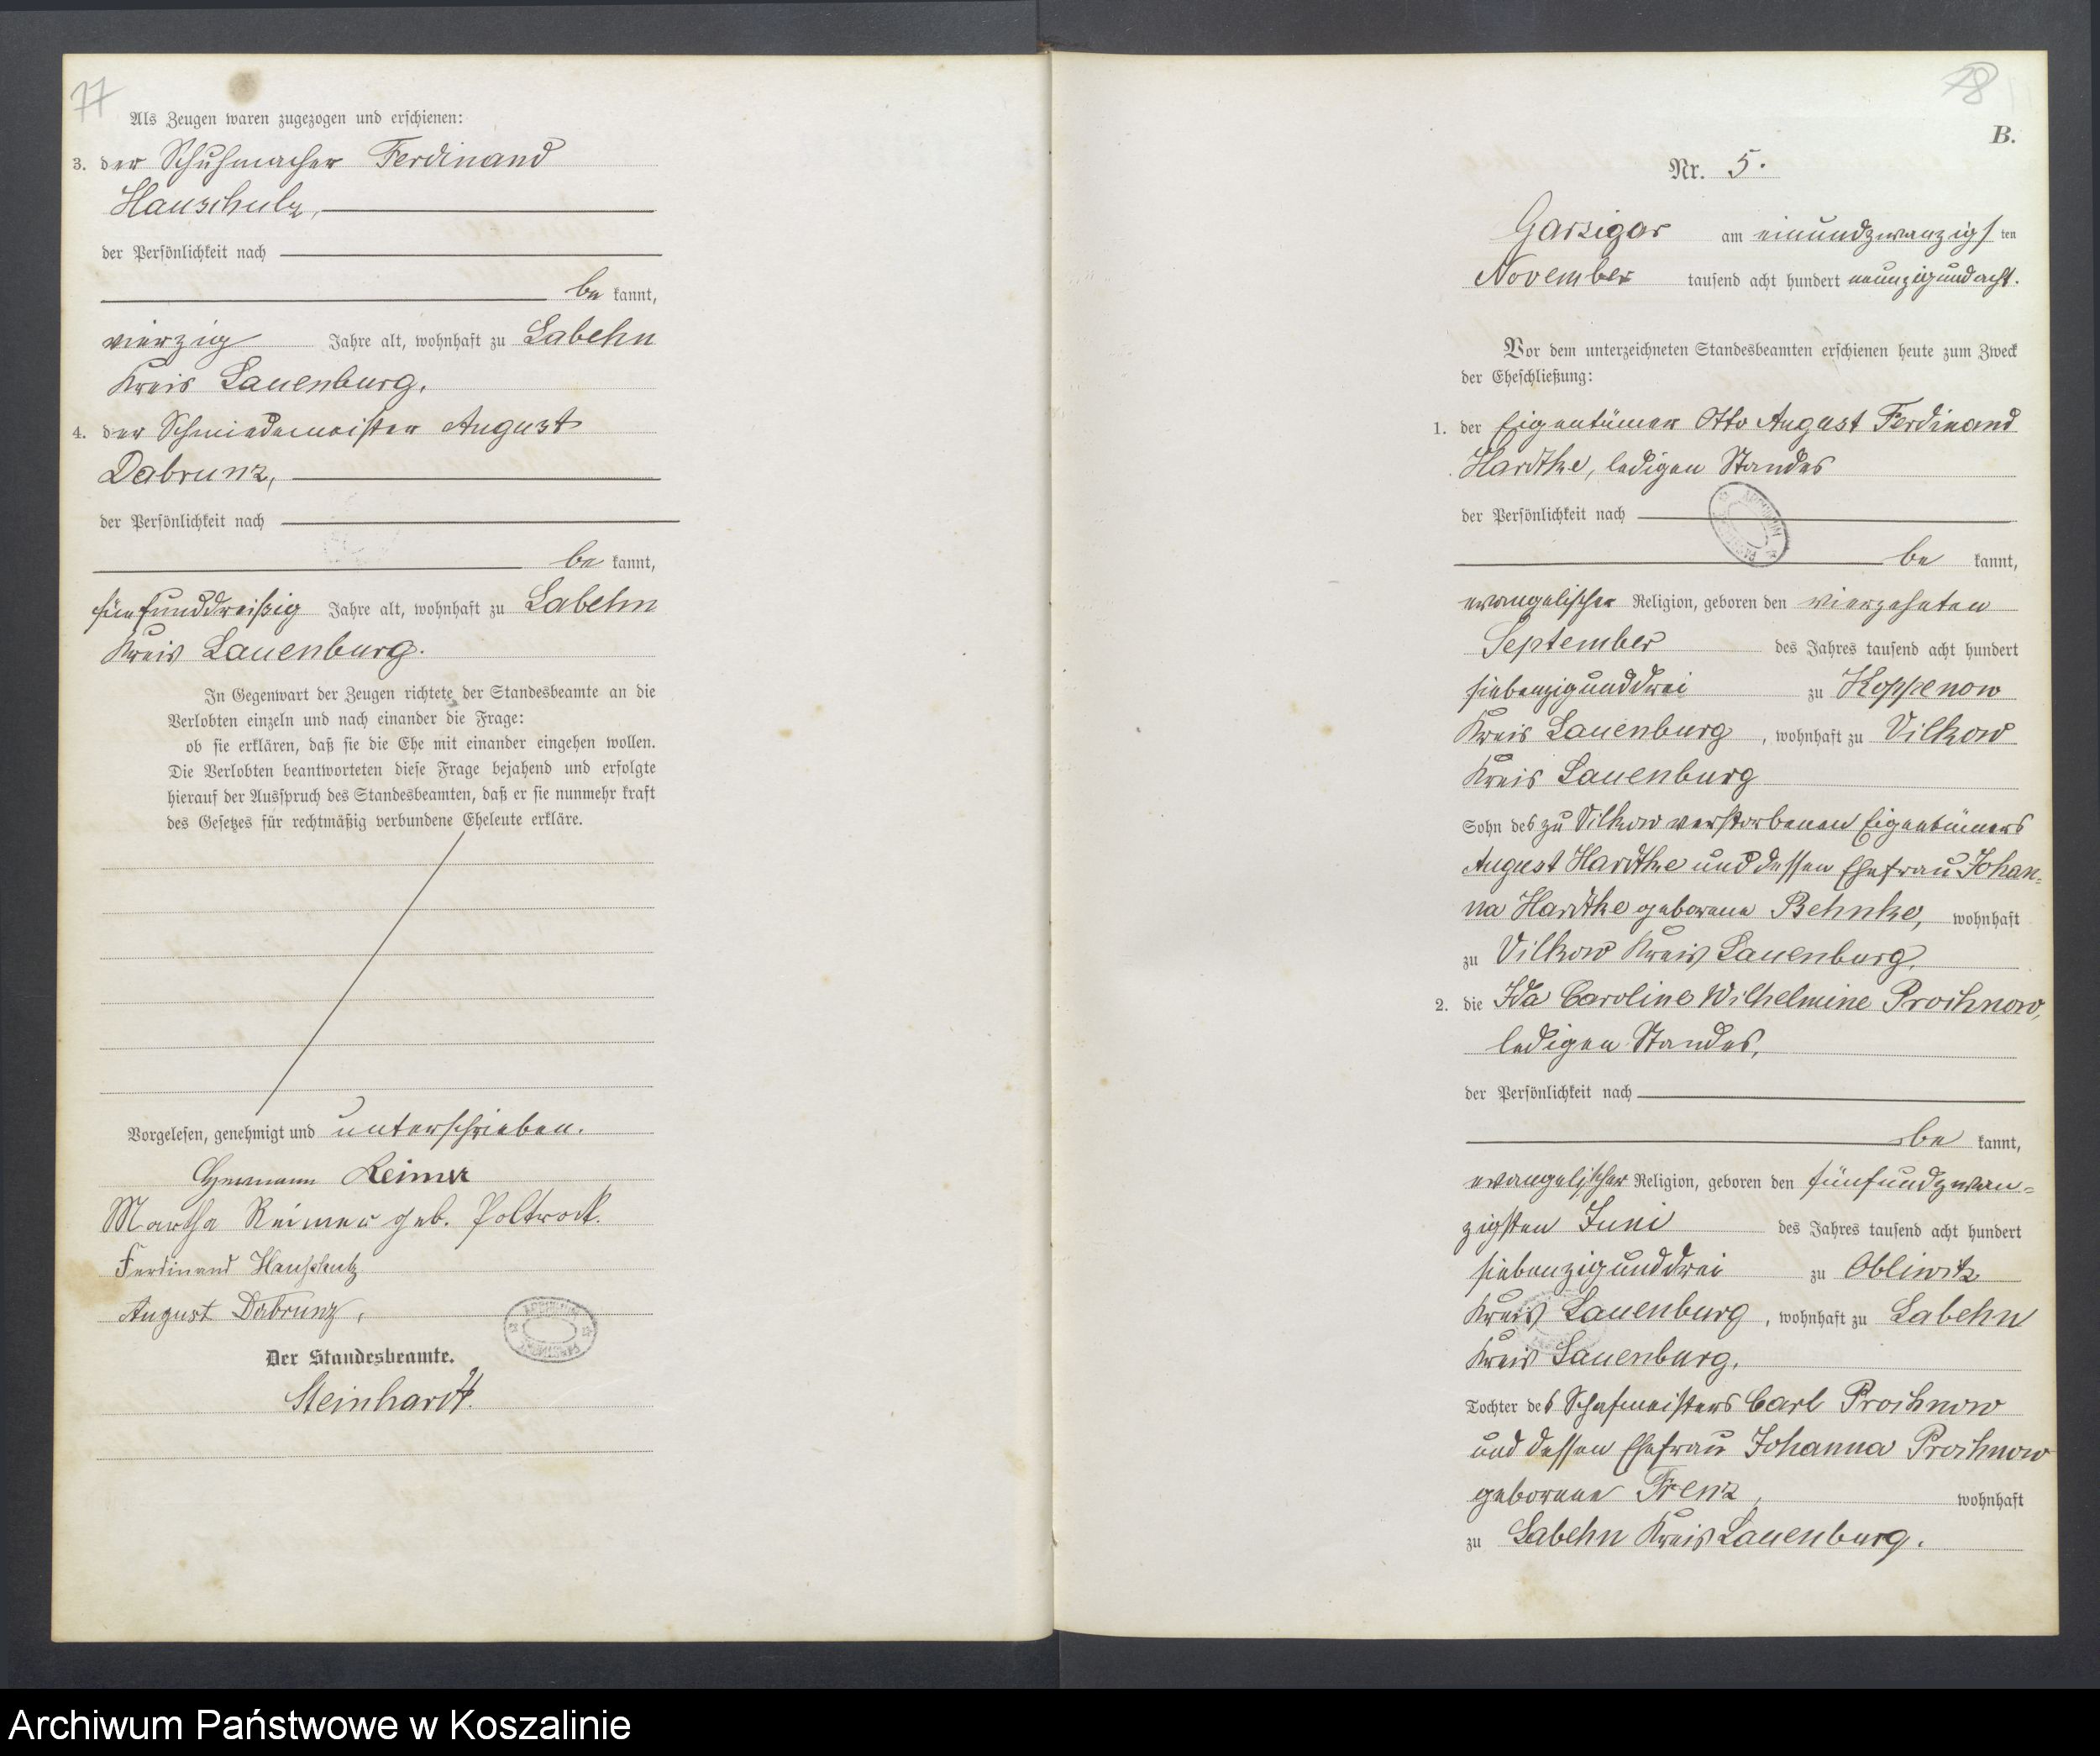 77
Als Zeugen waren zugezogen und erschienen:
3. der Schuhmacher Ferdinand
Hauschulz,
der Persönlichkeit nach
be kannt,
vierzig Jahre alt, wohnhaft zu Labehn
Kreis Lauenburg.
4. der Schmiedemeister August
Dabrunz,
der Persönlichkeit nach
be kannt,
fünfunddreißig Jahre alt, wohnhaft zu Labehn
Kreis Lauenburg.
In Gegenwart der Zeugen richtete der Standesbeamte an die
Verlobten einzeln und nach einander die Frage:
ob sie erklären, daß sie die Ehe mit einander eingehen wollen.
Die Verlobten beantworteten diese Frage bejahend und erfolgte
hierauf der Ausspruch des Standesbeamten, daß er sie nunmehr kraft
des Gesetzes für rechtmäßig verbundene Eheleute erkläre.
Vorgelesen, genehmigt und unterschrieben.
Hermann Reimer
Martha Reimer geb. Poltrock.
Ferdinand Hauschulz
August Dabrunz,
Der Standesbeamte.
Steinhardt.
78
B.
Nr. 5.
Garzigar am einundzwanzigs ten
November tausend acht hundert neunzigundacht.
Vor dem unterzeichneten Standesbeamten erschienen heute zum Zweck
der Eheschließung:
1. der Eigentümer Otto August Ferdinand
Hardtke, ledigen Standes
der Persönlichkeit nach
be kannt,
evangelischer Religion, geboren den vierzehnten
September des Jahres tausend acht hundert
siebenzigunddrei zu Koppenow
Kreis Lauenburg, wohnhaft zu Vilkow
Kreis Lauenburg
Sohn des zu Vilkow verstorbenen Eigentümers
August Hardtke und dessen Ehefrau Johan=
na Hardtke geborene Behnke, wohnhaft
zu Vilkow Kreis Lauenburg.
2. die Ida Caroline Wilhelmine Prochnow,
ledigen Standes,
der Persönlichkeit nach
be kannt,
evangelischer Religion, geboren den fünfundzwan=
zigsten Juni des Jahres tausend acht hundert
siebenzigunddrei zu Obliwitz
Kreis Lauenburg, wohnhaft zu Labehn
Kreis Lauenburg.
Tochter des Schafmeisters Carl Prochnow
und dessen Ehefrau Johanna Prochnow
geborene Frenz, wohnhaft
zu Labehn Kreis Lauenburg.
Archiwum Państwowe w Koszalinie